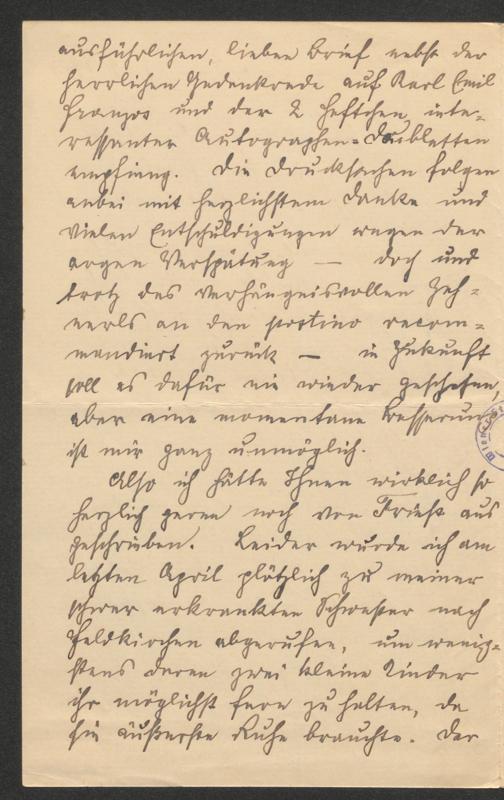 ausführlichen, lieben Brief nebst der
herrlichen Gedenkrede auf Karl Emil
Franzos und der 2 Heftchen inte-
ressanter Autographen-
empfing. Die Drucksachen folgen
anbei mit herzlichstem Danke und
vielen Entschuldigungen wegen der
argen Verspätung — doch und
trotz des verhängnisvollen Zeh-
nerls an den postino recom-
mandiert zurück — in Zukunft
soll es dafür nie wieder geschehen,
aber eine momentane Besserung
ist mir ganz unmöglich.
Also ich hätte Ihnen wirklich so
herzlich gerne noch von Triest aus
geschrieben. Leider wurde ich am
letzten April plötzlich zu meiner
schwer erkrankten Schwester nach
Feldkirchen abgerufen, um wenig-
stens deren zwei kleine Kinder
ihr möglichst fern zu halten, da
sie äußerste Ruhe brauchte. Der